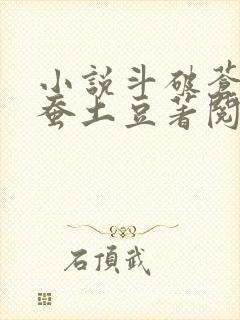 小説斗破蒼
蚕土豆著閱
石頂武